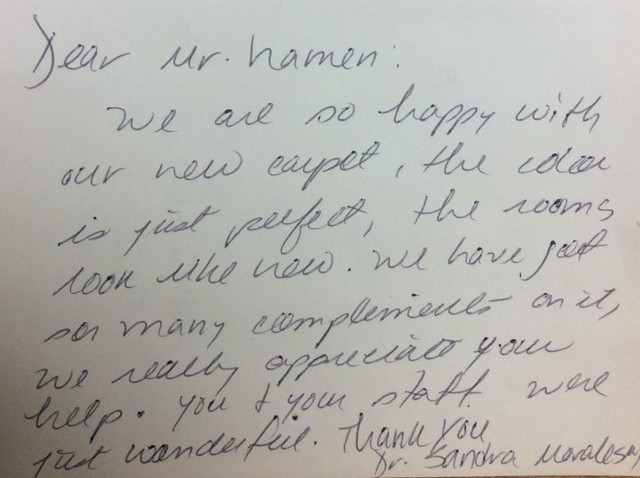 Dear Mr. Namen:
We are so happy with
our new carpet, the color
is just perfect, the rooms
look like new. We have got
so many complements on it,
we really appreciate your
help. You & your staff were
just wonderful. Thank you
Dr. Sandra Morales